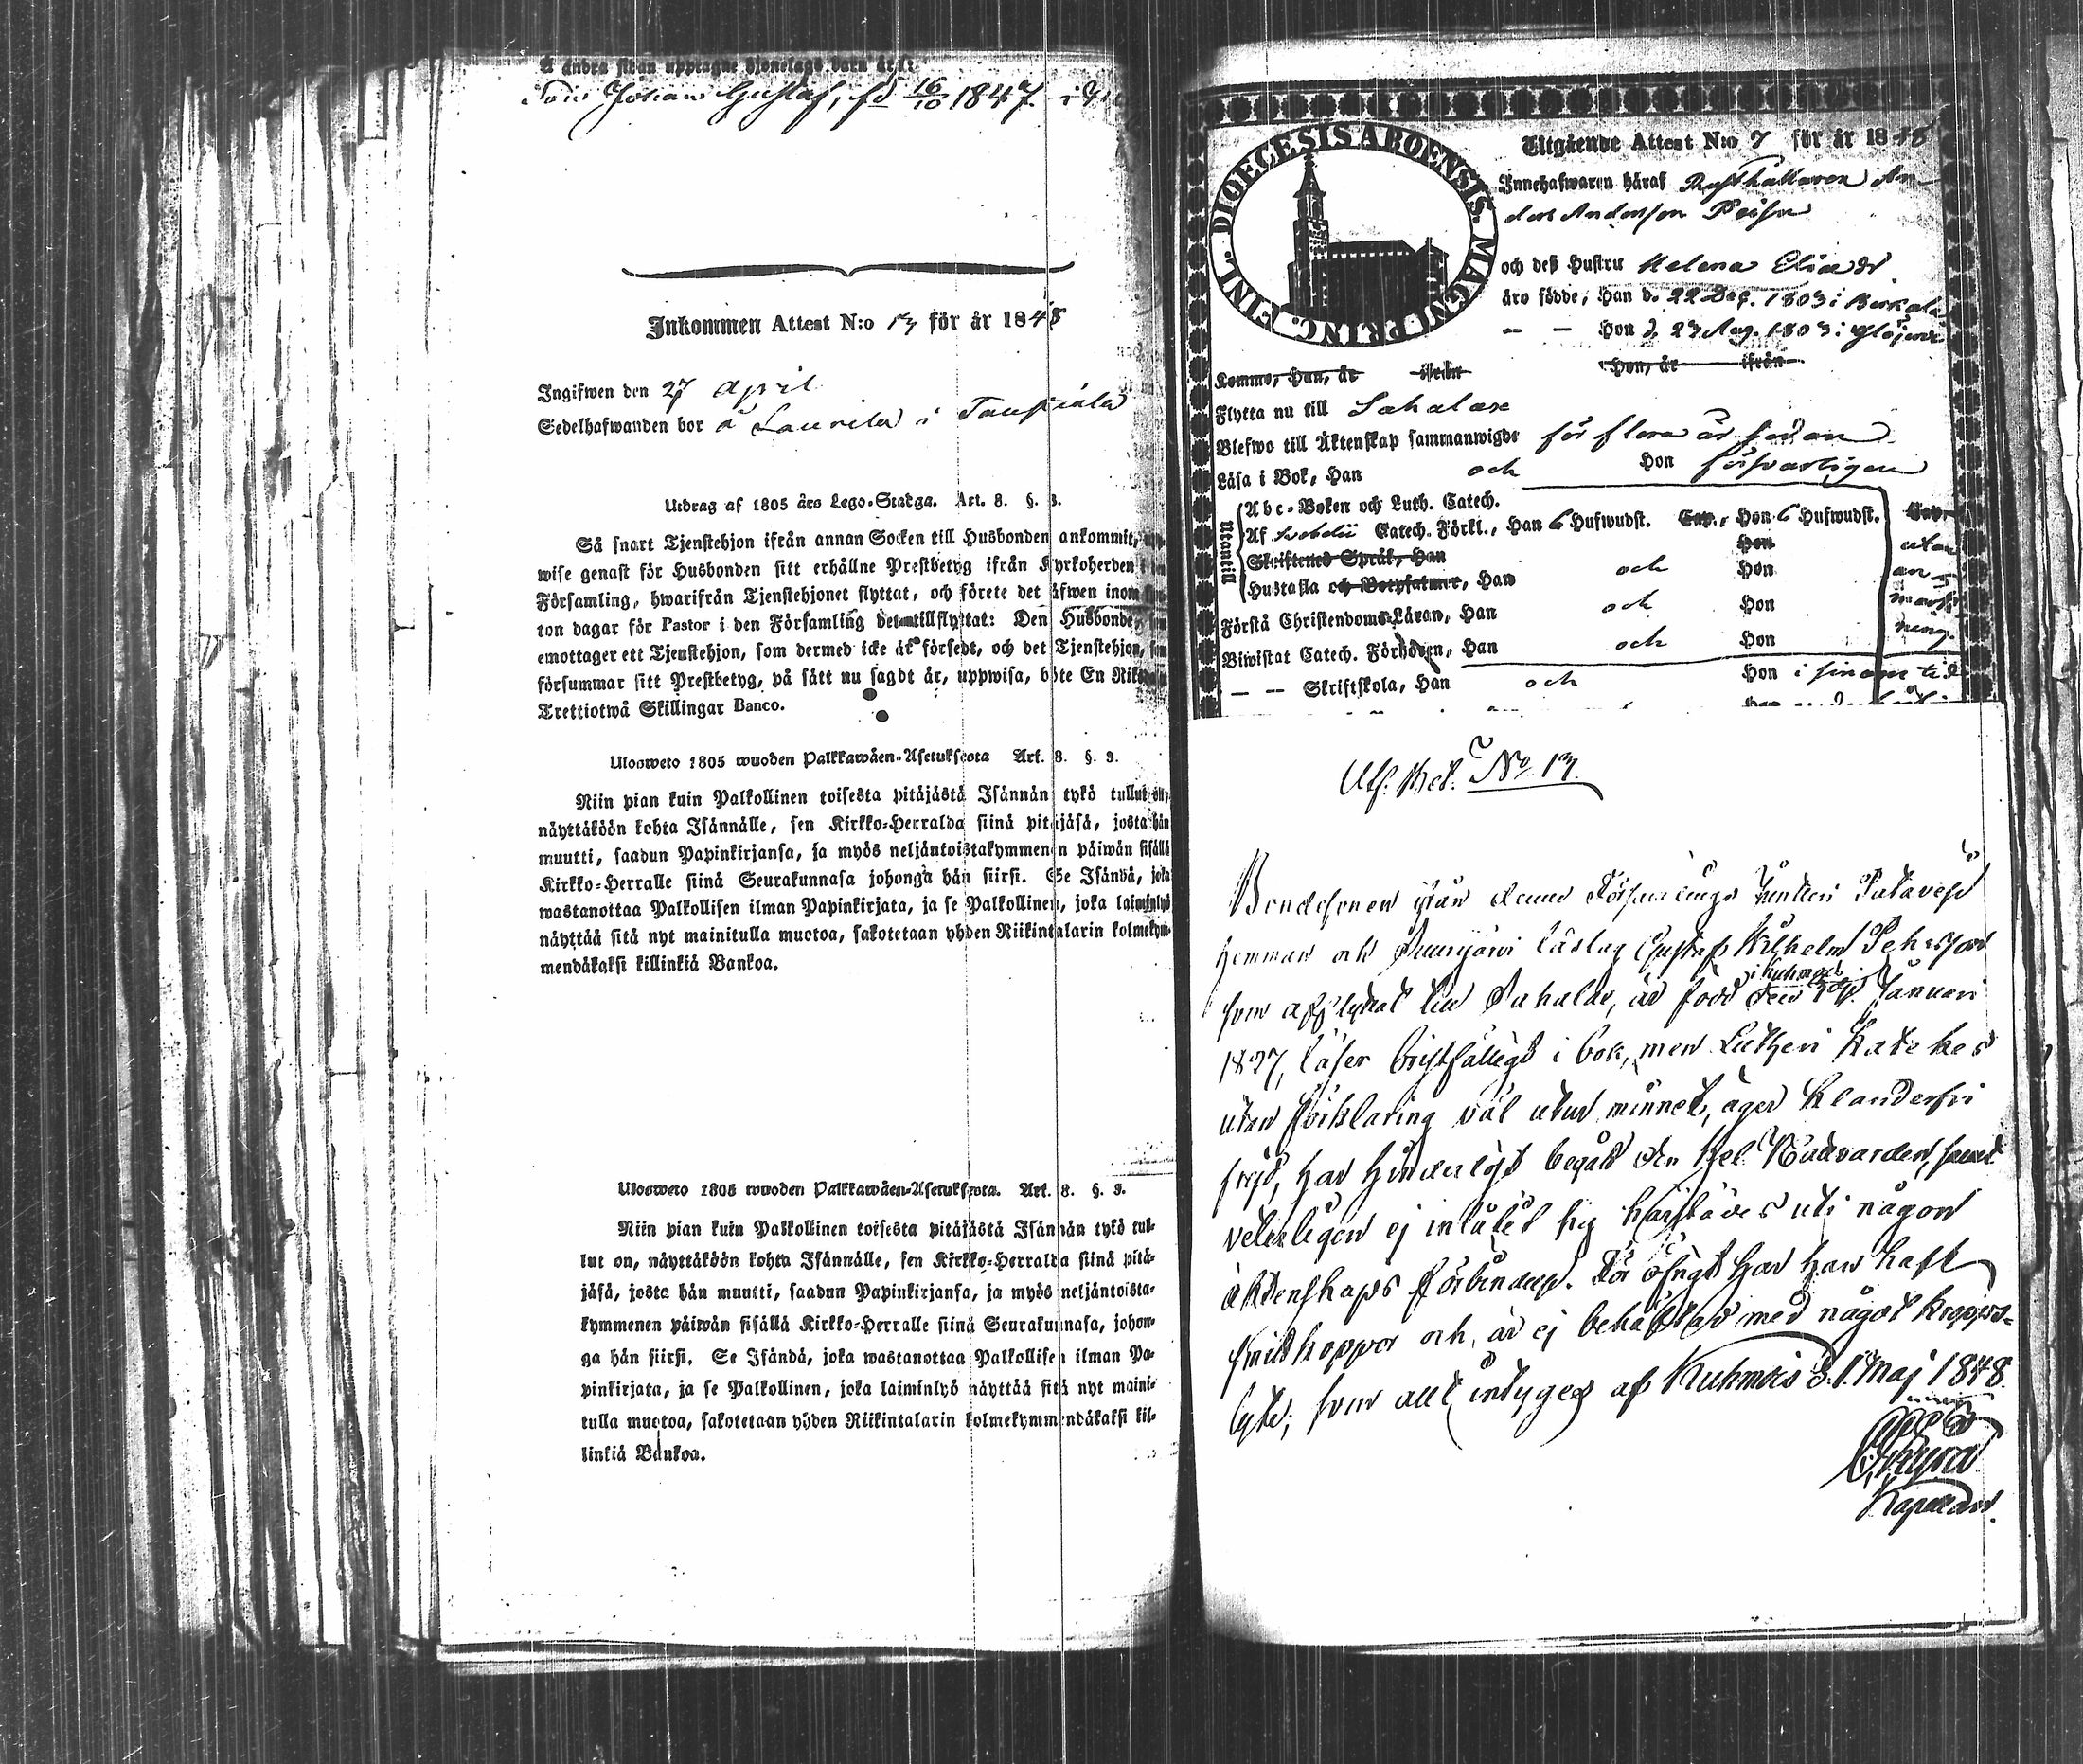 å andra sidan upptagne hjonelags barn äro:
Son Johan Gustaf, fd 16/10 1847 i
Inkommen Attest N:o 13 för år 1848
Ingifwen den 27 April
Sedelhafwanden bor å Laurila i
Utdrag af 1805 års Lego-Stadga. Art. 8. §. 3.
Så snart Tjenstehjon ifrån annan Socken till Husbonden ankommit,
wise genast för Husbonden sitt erhållne Prestbetyg ifrån Kyrkoherden i
Församling, hwarifrån Tjenstehjonet flyttat, och förete det äfwen inom
ton dagar för Pastor i den Församling det tillflyttat: Den Husbonde,
emottager ett Tjenstehjon, som dermed icke är försedt, och det Tjenstehjon, som
försummar sitt Prestbetyg, på sätt nu sagdt är, uppwisa, böte En Riksdaler
Trettiotwå Skillingar Banco.
Ulosweto 1805 wuoden Palkkawäen-Asetuksesta Art. 8. §. 3.
Niin pian kuin Palkollinen toisesta pitäjästä Isännän tykö tullut on,
näyttäköön kohta Isännälle, sen Kirkko-Herralda siinä pitäjäsä, josta hän
muutti, saadun Papinkirjansa, ja myös neljäntoistakymmenen päiwän sisällä
Kirkko-Herralle siinä Seurakunnasa johonga hän siirsi. Se Isändä, joka
wastanottaa Palkollisen ilman Papinkirjata, ja se Palkollinen, joka laiminlyö
näyttää sitä nyt mainitulla muotoa, sakotetaan yhden Riikintalarin kolmekym-
mendäkaksi killinkiä Bankoa.
Ulosweto 1805 wuoden Palkkawäen-Asetuksesta. Art. 8. §. 3.
Niin pian kuin Palkollinen toisesta pitäjästä Isännän tykö tul-
lut on, näyttäköön kohta Isännälle, sen Kirkko-Herralda siinä pitä-
jäsä, josta hän muutti, saadun Papinkirjansa, ja myös neljäntoista-
kymmenen päiwän sisällä Kirkko-Herralle siinä Seurakunnasa, johon-
ga hän siirsi. Se Isändä, joka wastanottaa Palkollisen ilman Pa-
pinkirjata, ja se Palkollinen, joka laiminlyö näyttää sitä nyt maini-
tulla muotoa, sakotetaan yhden Riikintalarin kolmekymmendäkaksi kil-
linkiä Bankoa.
DIOECESIS ABOENSIS. MAGNI PRINC. FINL.
Utgående Attest N:o 7 för år 1848
Innehafwaren häraf Rusthållaren An-
ders Andersson Peisu
och deß Hustru Helena Eliaedr
äro födde, Han d. 22 Dec. 1803 i Birkala
— — Hon d. 23 Aug. 1803 i Ylöjärvi
Kommo, Han, år ifrån Hon, år ifrån
Flytta nu till Sahalax
Blefwo till Äktenskap sammanwigde för flera år sedan
Läsa i Bok, Han och Hon försvarligen
Utantill
Abc-Boken och Luth. Catech.
Af Svebelii Catech. Förkl., Han 6 Hufwudst. Cap., Hon 6 Hufwudst. Cap.
Skriftenes Språk, Han Hon utan
Hustafla och Botpsalmer, Han och Hon an-
Förstå Christendoms-Läran, Han och Hon märk
Biwistat Catech. Förhören, Han och Hon ning.
— — Skriftskola, Han och Hon i sinom tid
Utf. Bet. No 13.
Bondesonen ifrån denna Församlings
hemman och läslag Gustaf Wilhelm Pehrsson
i Kuhmois
som afflyttat till Sahalax, är född den Januari
1827, läser bristfälligt i bok, men Lutheri Kateches
utan förklaring väl utur minnet, äger klanderfri
frejd, har hinderligt begått den Hel. Nattvarden, samt
veterligen ej inlåtit sig härstädes uti någon
äktenskaps förbindelse. För öfrigt har han haft
smittkoppor och är ej behäftad med något kropps-
lyte; som allt intygas af Kuhmois d. 1 Maj 1848.
Kapellan.